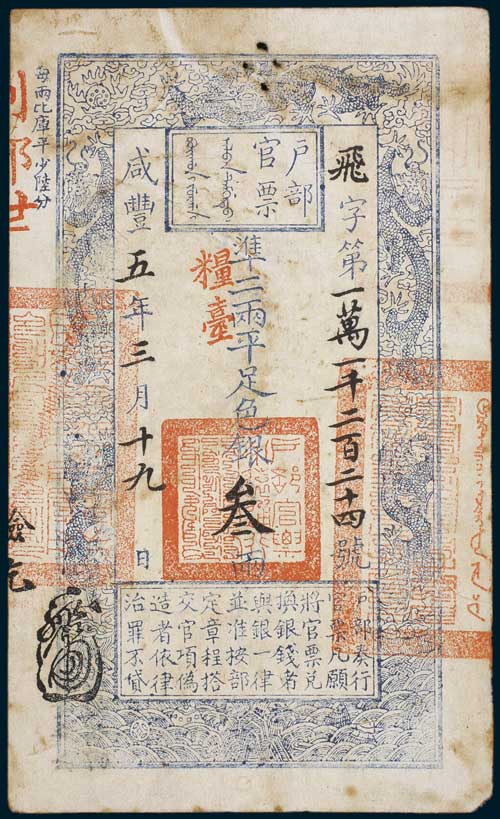 戶部
官票
飛字第一萬一千二百二十四號
準二兩平足色銀叁兩
糧臺
咸豐五年三月十九日
每兩比庫平少陸分
戶部奏行
官票凡願
將官票兌
換銀錢者
與銀一律
並准按部
定章程搭
交官項偽
造者依律
治罪不貸